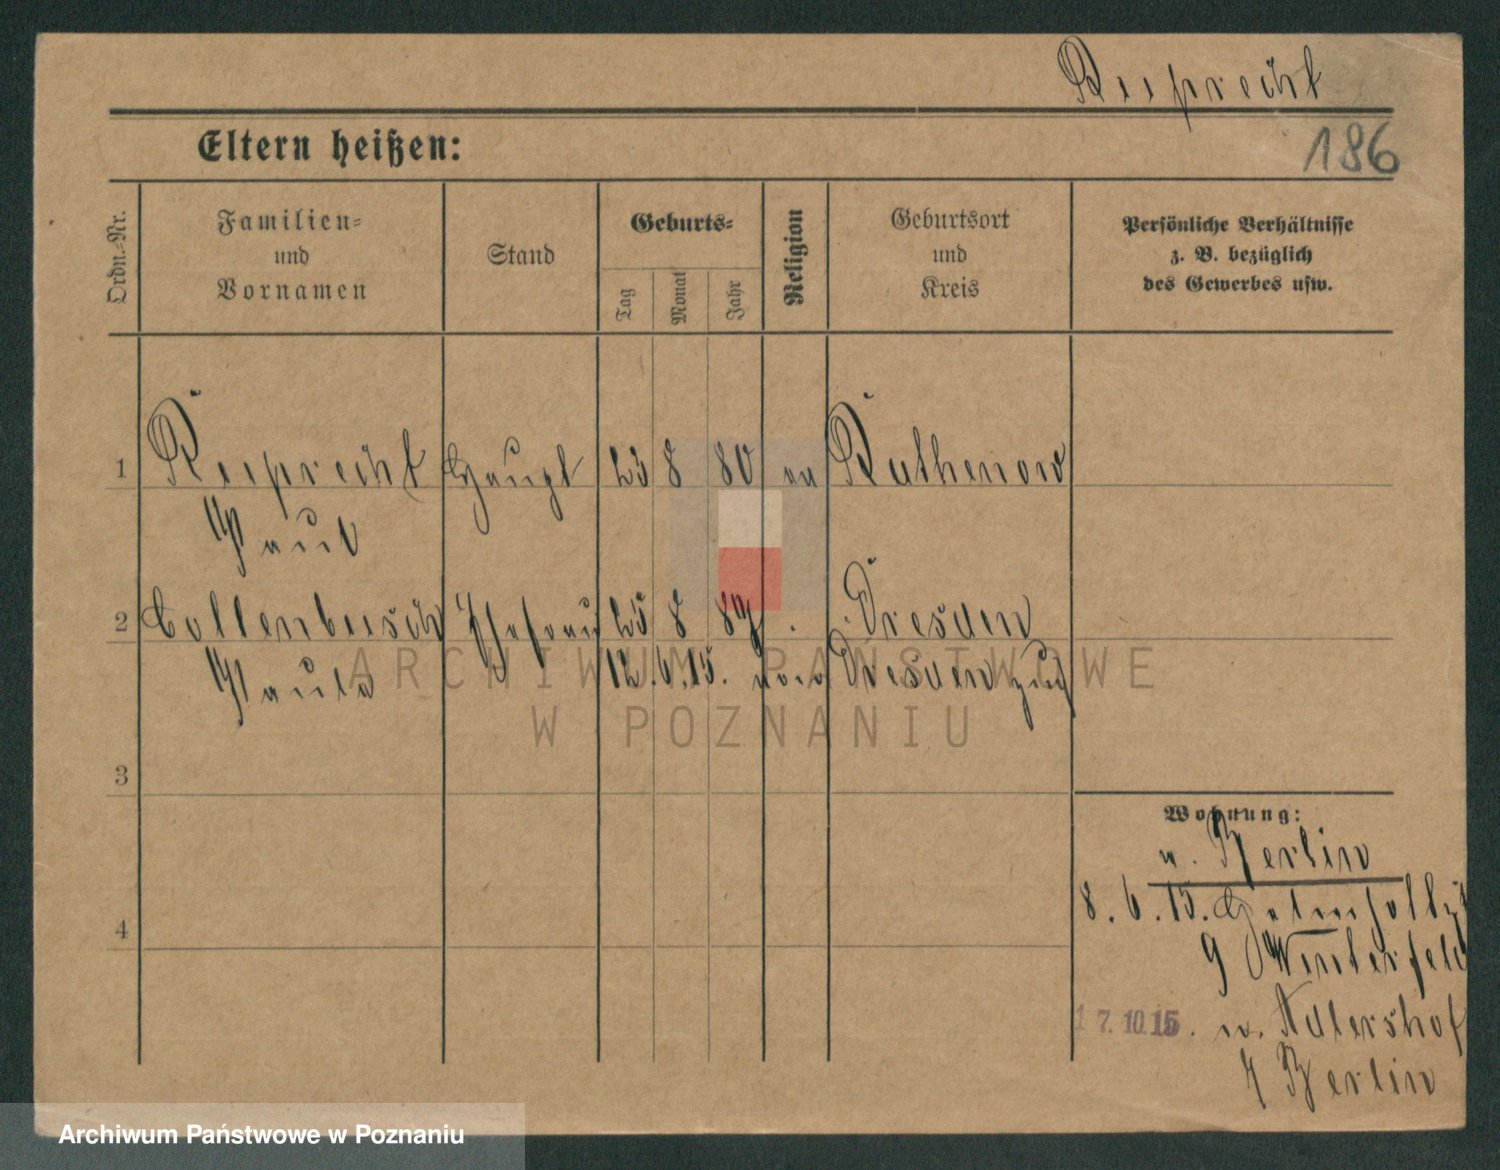 Ruprecht
Eltern heißen:
186
Ordn.-Nr.
Familien-
und
Vornamen
Stand
Geburts-
Tag
Monat
Jahr
Religion
Geburtsort
und
Kreis
Persönliche Verhältnisse
z. B. bezüglich
des Gewerbes usw.
1 Ruprecht Hauptm 23 8 80 ev Rathenow
Paul
2 Collenbusch Ehefrau 25 8 89 Dresden
Paula 12.6.15. von Dresden zug
ARCHIWUM PAŃSTWOWE
W POZNANIU
3
Wohnung:
n. Berlin
8.6.15.
4
9 Winterfeld
17.10.15. n. Adlershof
Berlin
Archiwum Państwowe w Poznaniu